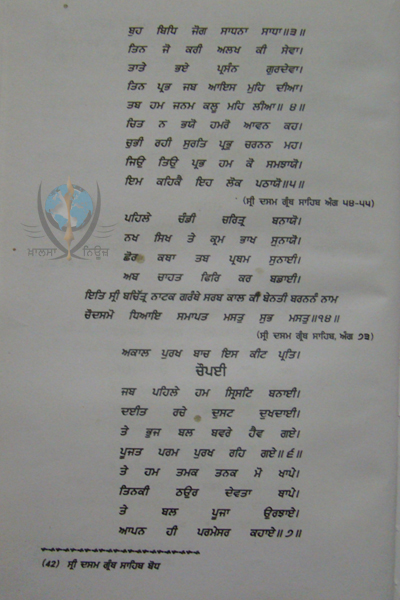 ਬਹੁ ਬਿਧਿ ਜੋਗ ਸਾਧਨਾ ਸਾਧਾ॥੩॥
ਤਿਨ ਜੋ ਕਰੀ ਅਲਖ ਕੀ ਸੇਵਾ।
ਤਾਤੇ ਭਏ ਪ੍ਰਸੰਨ ਗੁਰਦੇਵਾ।
ਤਿਨ ਪ੍ਰਭ ਜਬ ਆਇਸ ਮੁਹਿ ਦੀਆ।
ਤਬ ਹਮ ਜਨਮ ਕਲੂ ਮਹਿ ਲੀਆ॥ ੪॥
ਚਿਤ ਨ ਭਯੋ ਹਮਰੋ ਆਵਨ ਕਹ।
ਚੁਭੀ ਰਹੀ ਸੁਰਤਿ ਪ੍ਰਭੁ ਚਰਨਨ ਮਹ।
ਜਿਉ ਤਿਉ ਪ੍ਰਭ ਹਮ ਕੋ ਸਮਝਾਯੋ।
ਇਮ ਕਹਿਕੈ ਇਹ ਲੋਕ ਪਠਾਯੋ॥੫॥
(ਸ੍ਰੀ ਦਸਮ ਗ੍ਰੰਥ ਸਾਹਿਬ ਅੰਗ ੫੪-੫੫)
ਪਹਿਲੇ ਚੰਡੀ ਚਰਿਤ੍ਰ ਬਨਾਯੋ।
ਨਖ ਸਿਖ ਤੇ ਕ੍ਰਮ ਭਾਖ ਸੁਨਾਯੋ।
ਛੋਰ ਕਥਾ ਤਬ ਪ੍ਰਥਮ ਸੁਨਾਈ।
ਅਬ ਚਾਹਤ ਫਿਰਿ ਕਰ ਬਡਾਈ।
ਇਤਿ ਸ੍ਰੀ ਬਚਿੱਤ੍ਰ ਨਾਟਕ ਗਰੰਥੇ ਸਰਬ ਕਾਲ ਕੀ ਬੇਨਤੀ ਬਰਨਨੰ ਨਾਮ
ਚੌਦਸਮੋ ਧਿਆਇ ਸਮਾਪਤ ਮਸਤੁ ਸੁਭ ਮਸਤੁ॥੧੪॥
(ਸ੍ਰੀ ਦਸਮ ਗ੍ਰੰਥ ਸਾਹਿਬ, ਅੰਗ ੭੩)
ਅਕਾਲ ਪੁਰਖ ਬਾਚ ਇਸ ਕੀਟ ਪ੍ਰਤਿ।
ਚੌਪਈ
ਜਬ ਪਹਿਲੇ ਹਮ ਸ੍ਰਿਸਟਿ ਬਨਾਈ।
ਦਈਤ ਰਚੇ ਦੁਸਟ ਦੁਖਦਾਈ।
ਤੇ ਭੁਜ ਬਲ ਬਵਰੇ ਹੈਵ ਗਏ।
ਪੂਜਤ ਪਰਮ ਪੁਰਖ ਰਹਿ ਗਏ॥੬॥
ਤੇ ਹਮ ਤਮਕ ਤਨਕ ਮੋ ਖਾਪੇ।
ਤਿਨਕੀ ਠਉਰ ਦੇਵਤਾ ਥਾਪੇ।
ਤੇ ਬਲ ਪੂਜਾ ਉਰਝਾਏ।
ਆਪਨ ਹੀ ਪਰਮੇਸਰ ਕਹਾਏ॥੭॥
(42) ਸ੍ਰੀ ਦਸਮ ਗ੍ਰੰਥ ਸਾਹਿਬ ਬੋਧ
ਖ਼ਾਲਸਾ ਨਿਊਜ਼